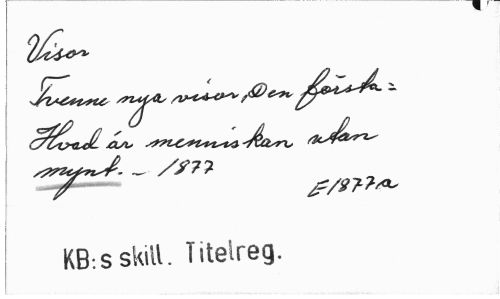 Visor
Tvenne nya visor, Den första:
Hvad är menniskan utan
mynt. – 1877
E1877a
KB:s skill. Titelreg.